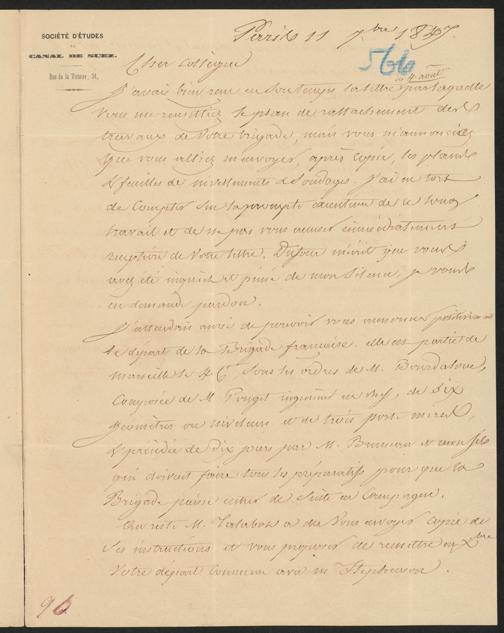 SOCIÉTÉ D'ÉTUDES
DU
CANAL DE SUEZ.
Rue de la Victoire, 34,
Paris 11 7.bre 1847.
566
Cher Collègue
du 4 août
J'avais bien reçu en son temps la lettre par laquelle
vous me remettiez le plan de rattachement des
travaux de votre brigade, mais vous m'annonciez
que vous alliez m'envoyer, après copie, les plans
& feuilles de nivellements & sondages. J'ai eu tort
de compter sur la prompte exécution de ce long
travail et de ne pas vous accuser immédiatement
réception de votre lettre. Dufour m'écrit que vous
avez été inquiet et peiné de mon silence, je vous
en demande pardon.
J'attendais aussi de pouvoir vous annoncer
le départ de la Brigade française. elle est partie de
Marseille le 4 Ct. sous les ordres de M. Bourdaloue,
composée de M. ingénieur en chef, de dix
géomètres ou niveleurs et de trois porte mires,
& précédée de dix jours par M. & mon fils
qui doivent faire tous les préparatifs pour que la
Brigade puisse entrer de suite en campagne.
Au reste M. Talabot a dû vous envoyer copie de
ses instructions et vous proposer de remettre en Xbre
votre départ commun avec M. Stephenson.
96